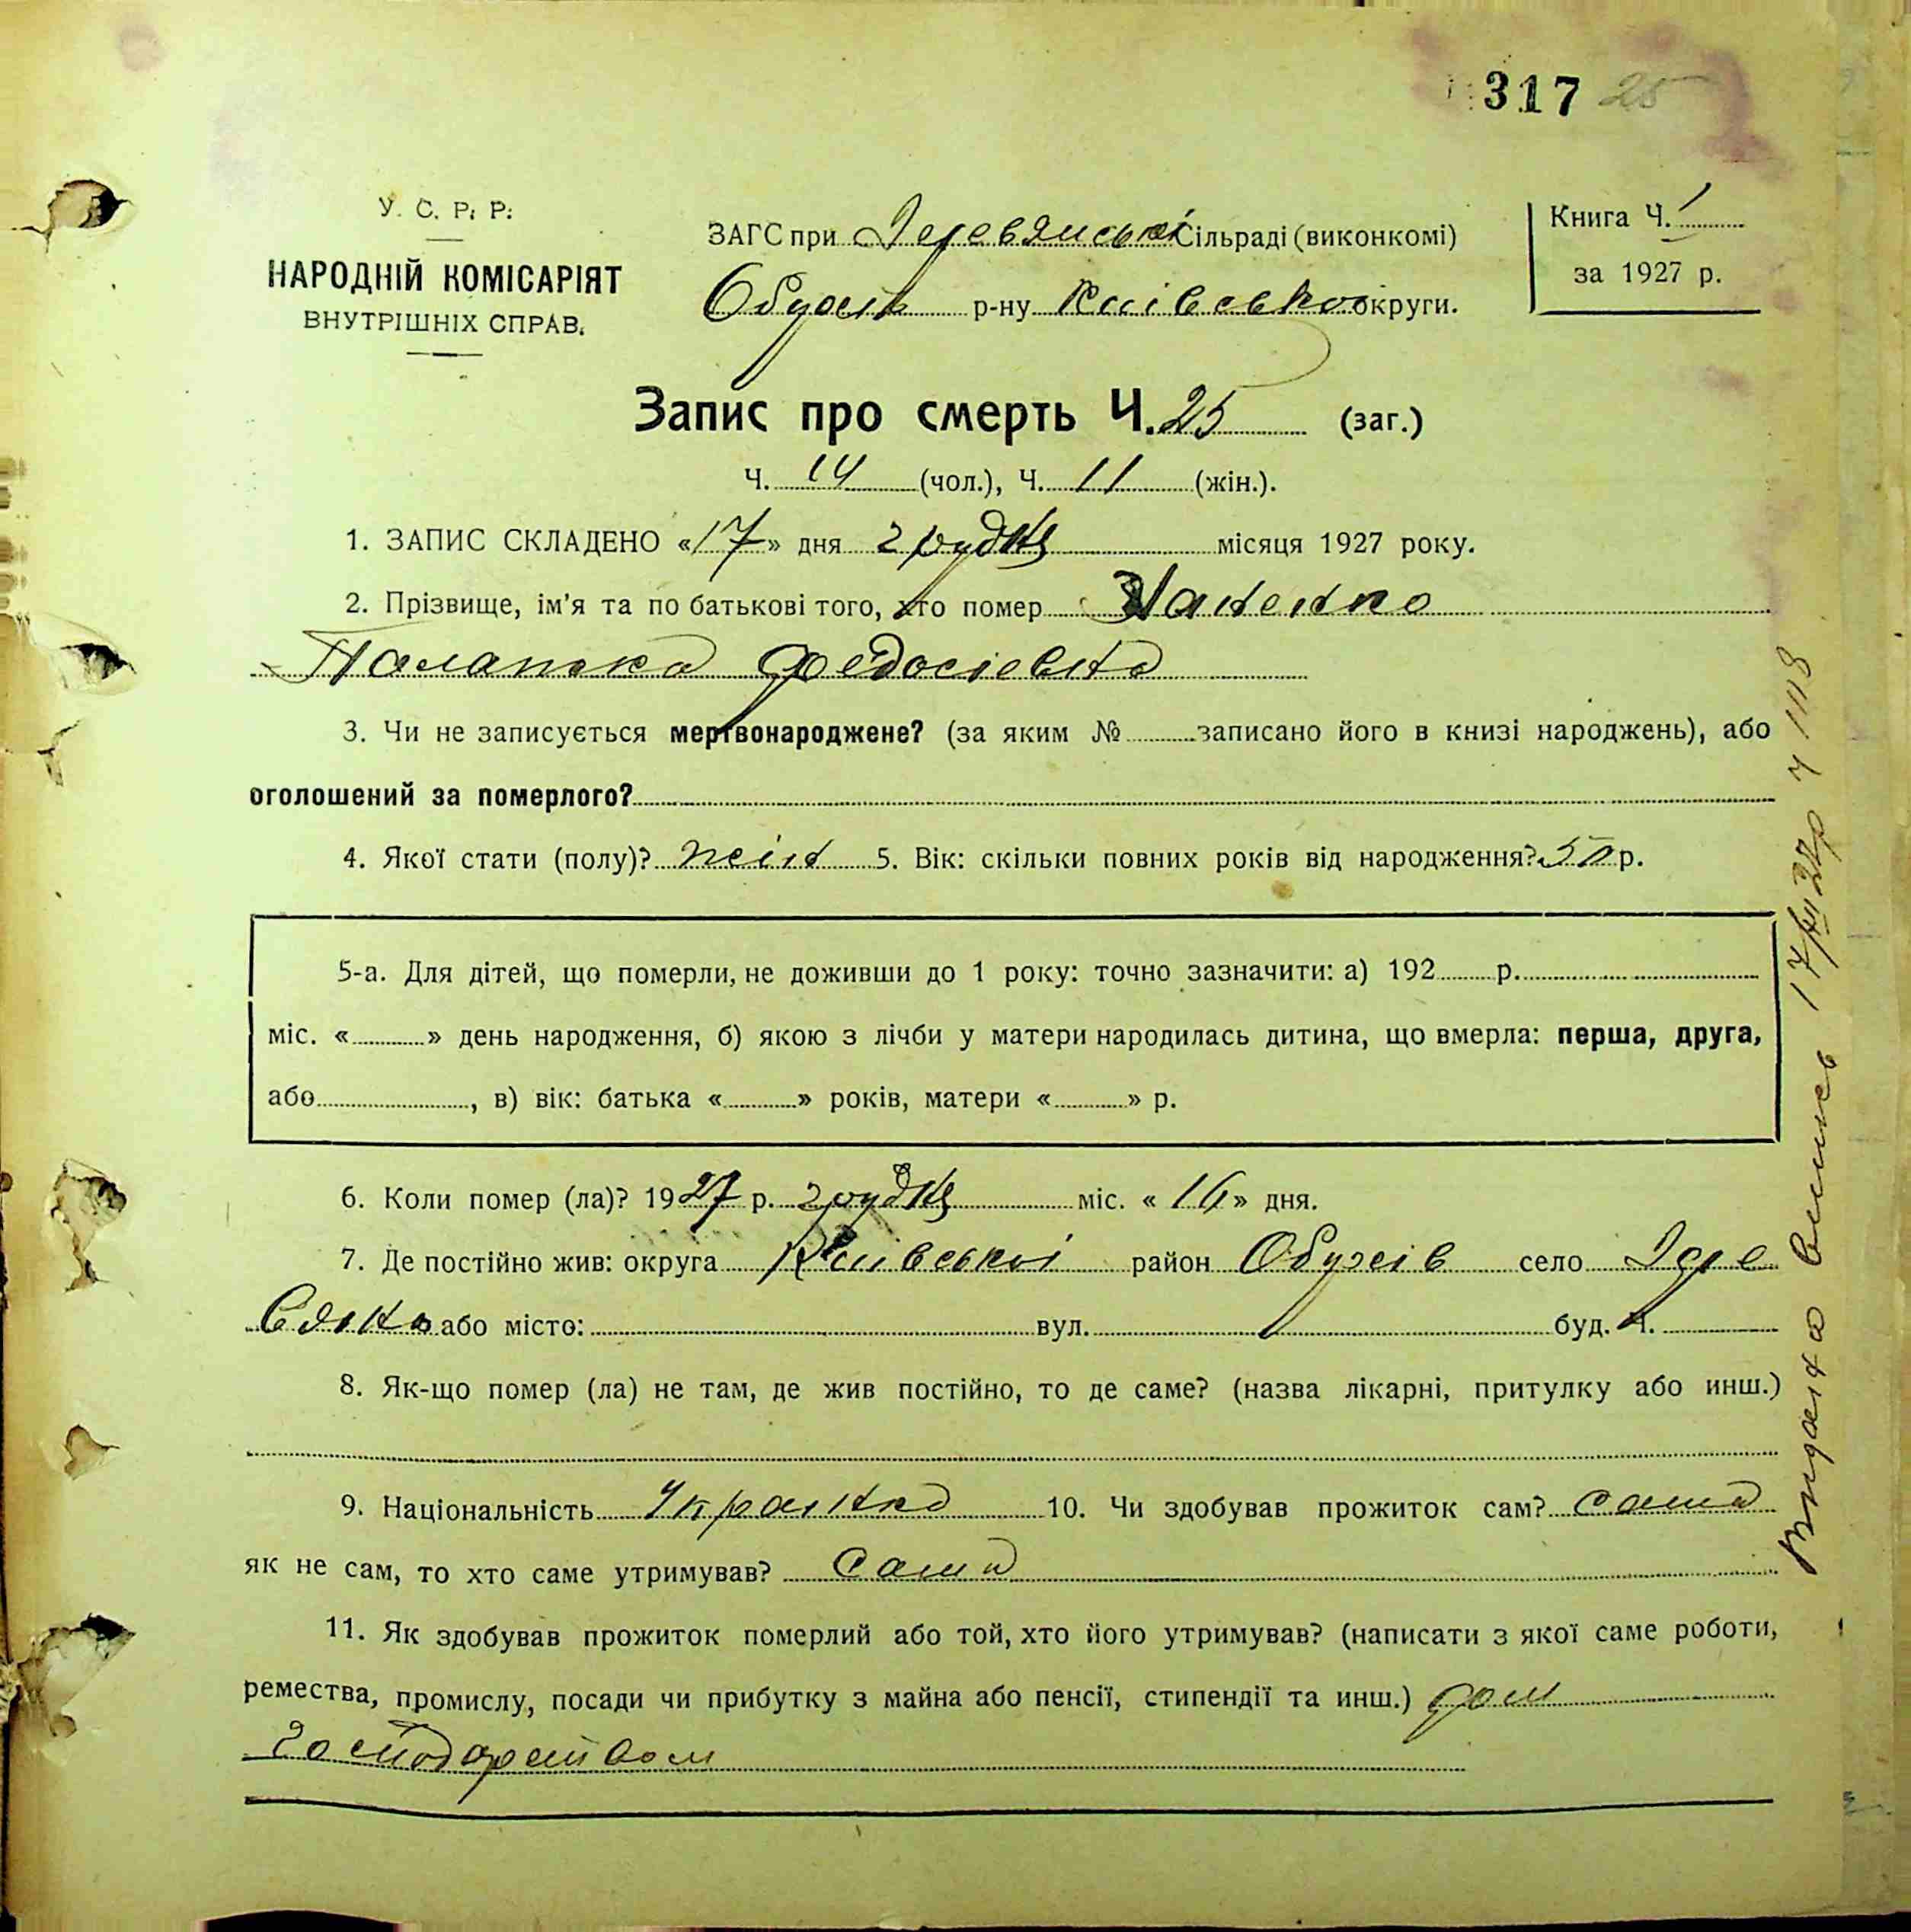 317 25
У. С. Р. Р.
НАРОДНІЙ КОМІСАРІЯТ
ВНУТРІШНІХ СПРАВ.
ЗАГС при Деревянській Сільраді (виконкомі)
Обухів р-ну Київської округи.
Книга Ч. 1
за 1927 р.
Запис про смерть Ч. 25 (заг.)
Ч. 14 (чол.), Ч. 11 (жін.).
1. ЗАПИС СКЛАДЕНО «17» дня грудня місяця 1927 року.
2. Прізвище, ім'я та по батькові того, хто помер
Палажка Федосієвна
3. Чи не записується мертвонароджене? (за яким № записано його в книзі народжень), або
оголошений за померлого?
4. Якої стати (полу)? жін 5. Вік: скільки повних років від народження? 50 р.
5-а. Для дітей, що померли, не доживши до 1 року: точно зазначити: а) 192 р.
міс. « » день народження, б) якою з лічби у матери народилась дитина, що вмерла: перша, друга,
або , в) вік: батька « » років, матери « » р.
6. Коли помер (ла)? 1927 р. грудня міс. «16» дня.
7. Де постійно жив: округа Київської район Обухів село Дере
вяна або місто: вул. буд. Ч.
8. Як-що помер (ла) не там, де жив постійно, то де саме? (назва лікарні, притулку або инш.)
9. Національність Українка 10. Чи здобував прожиток сам? сама
як не сам, то хто саме утримував? сама
11. Як здобував прожиток померлий або той, хто його утримував? (написати з якої саме роботи,
ремества, промислу, посади чи прибутку з майна або пенсії, стипендії та инш.) дом
господарством
Видана выпись 17/XII 27р Ч 1118